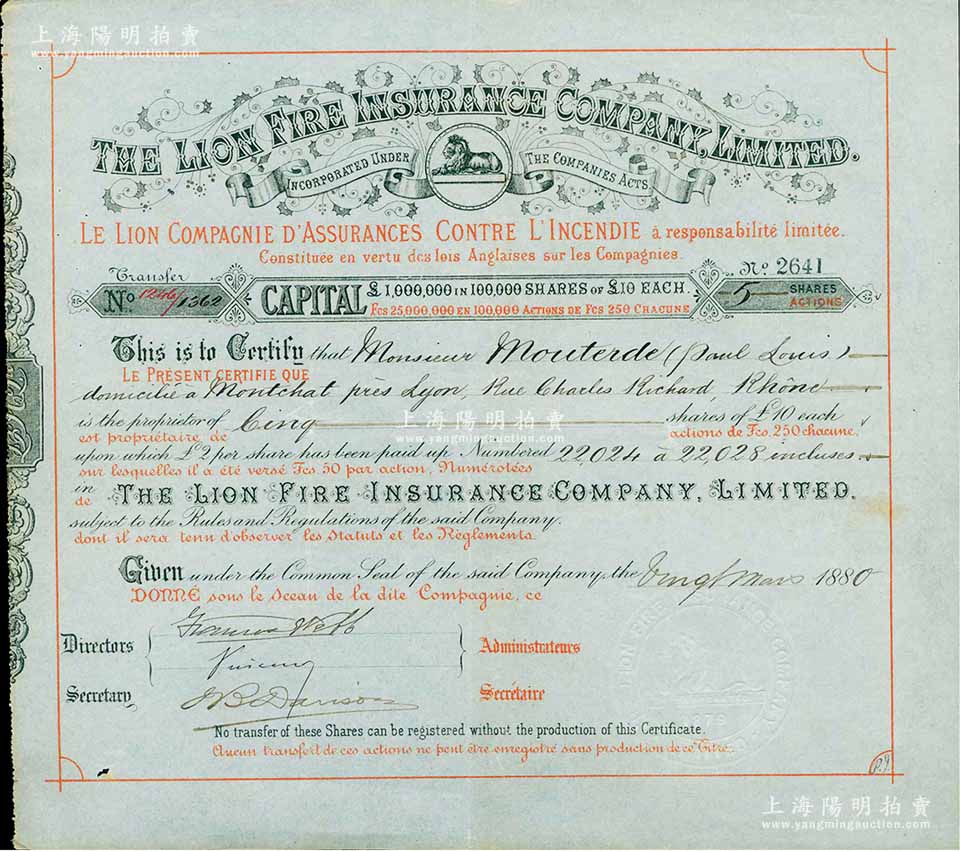 上海陽明拍賣
www.yangmingauction.com
THE LION FIRE INSURANCE COMPANY, LIMITED.
INCORPORATED UNDER THE COMPANIES ACTS
LE LION COMPAGNIE D'ASSURANCES CONTRE L'INCENDIE à responsabilité limitée.
Constituée en vertu des lois Anglaises sur les Compagnies.
Transfer
No. 2641
No. 1246/1362
CAPITAL £1,000,000 IN 100,000 SHARES OF £10 EACH.
FCS 25,000,000 EN 100,000 ACTIONS DE FCS 250 CHACUNE
5 SHARES
ACTIONS
This is to Certify that Monsieur Mouterde (Paul Louis)
LE PRÉSENT CERTIFIE QUE
domicilié à Montchat près Lyon, Rue Charles Richard, Rhône
is the proprietor of Cinq shares of £10 each
est propriétaire de actions de Fcs. 250 chacune,
upon which £2 per share has been paid up Numbered 22,024 à 22,028 incluses.
sur lesquelles il a été versé Fcs. 50 par action, Numérotées
in THE LION FIRE INSURANCE COMPANY, LIMITED.
de
subject to the Rules and Regulations of the said Company.
dont il sera tenu d'observer les Statuts et les Règlements.
Given under the Common Seal of the said Company, the Vingt Mars 1880
DONNÉ sous le Sceau de la dite Compagnie, ce
Directors Francis Webb Administrateurs
Secretary Secrétaire
No transfer of these Shares can be registered without the production of this Certificate.
Aucun transfert de ces actions ne peut être enregistré sans production de ce Titre.
上海陽明拍賣
www.yangmingauction.com
上海陽明拍賣
www.yangmingauction.com